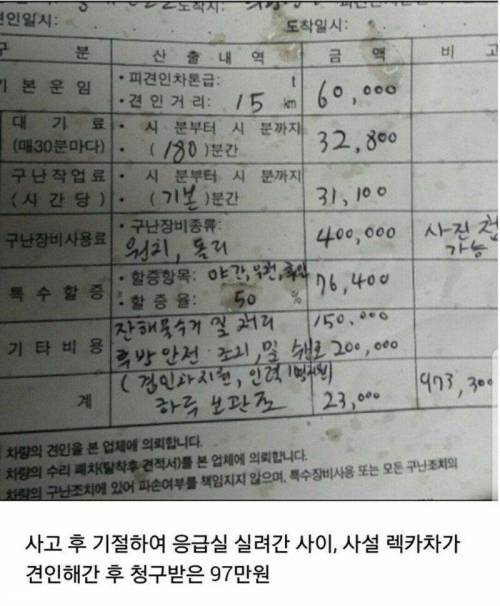 견인일시: 도착
도착일시:
구 분 산 출 내 역 금 액 비 고
기 본 운 임 • 피견인차톤급: t
• 견 인 거 리 : 15 km 60,000
대 기 료 • 시 분부터 시 분까지
(매30분마다) • (180)분간 32,800
구난작업료 • 시 분부터 시 분까지
(시 간 당) • (기본)분간 31,100
구난장비사용료 • 구난장비종류: 400,000 사진 첨
원치, 돌리 가능
특 수 할 증 • 할증항목: 야간, 휴일 76,400
• 할 증 율 : 50 %
잔해물수거 및 처리 150,000
기 타 비 용 후방안전·조치, 및 200,000
(견인차지원, 인력 1명지원) 973,300
계 하루 보관료 23,000
차량의 견인을 본 업체에 의뢰합니다.
차량의 수리 폐차(탈착후 견적서)를 본 업체에 의뢰합니다.
차량의 구난조치에 있어 파손여부를 책임지지 않으며, 특수장비사용 또는 모든 구난조치의
사고 후 기절하여 응급실 실려간 사이, 사설 렉카차가
견인해간 후 청구받은 97만원